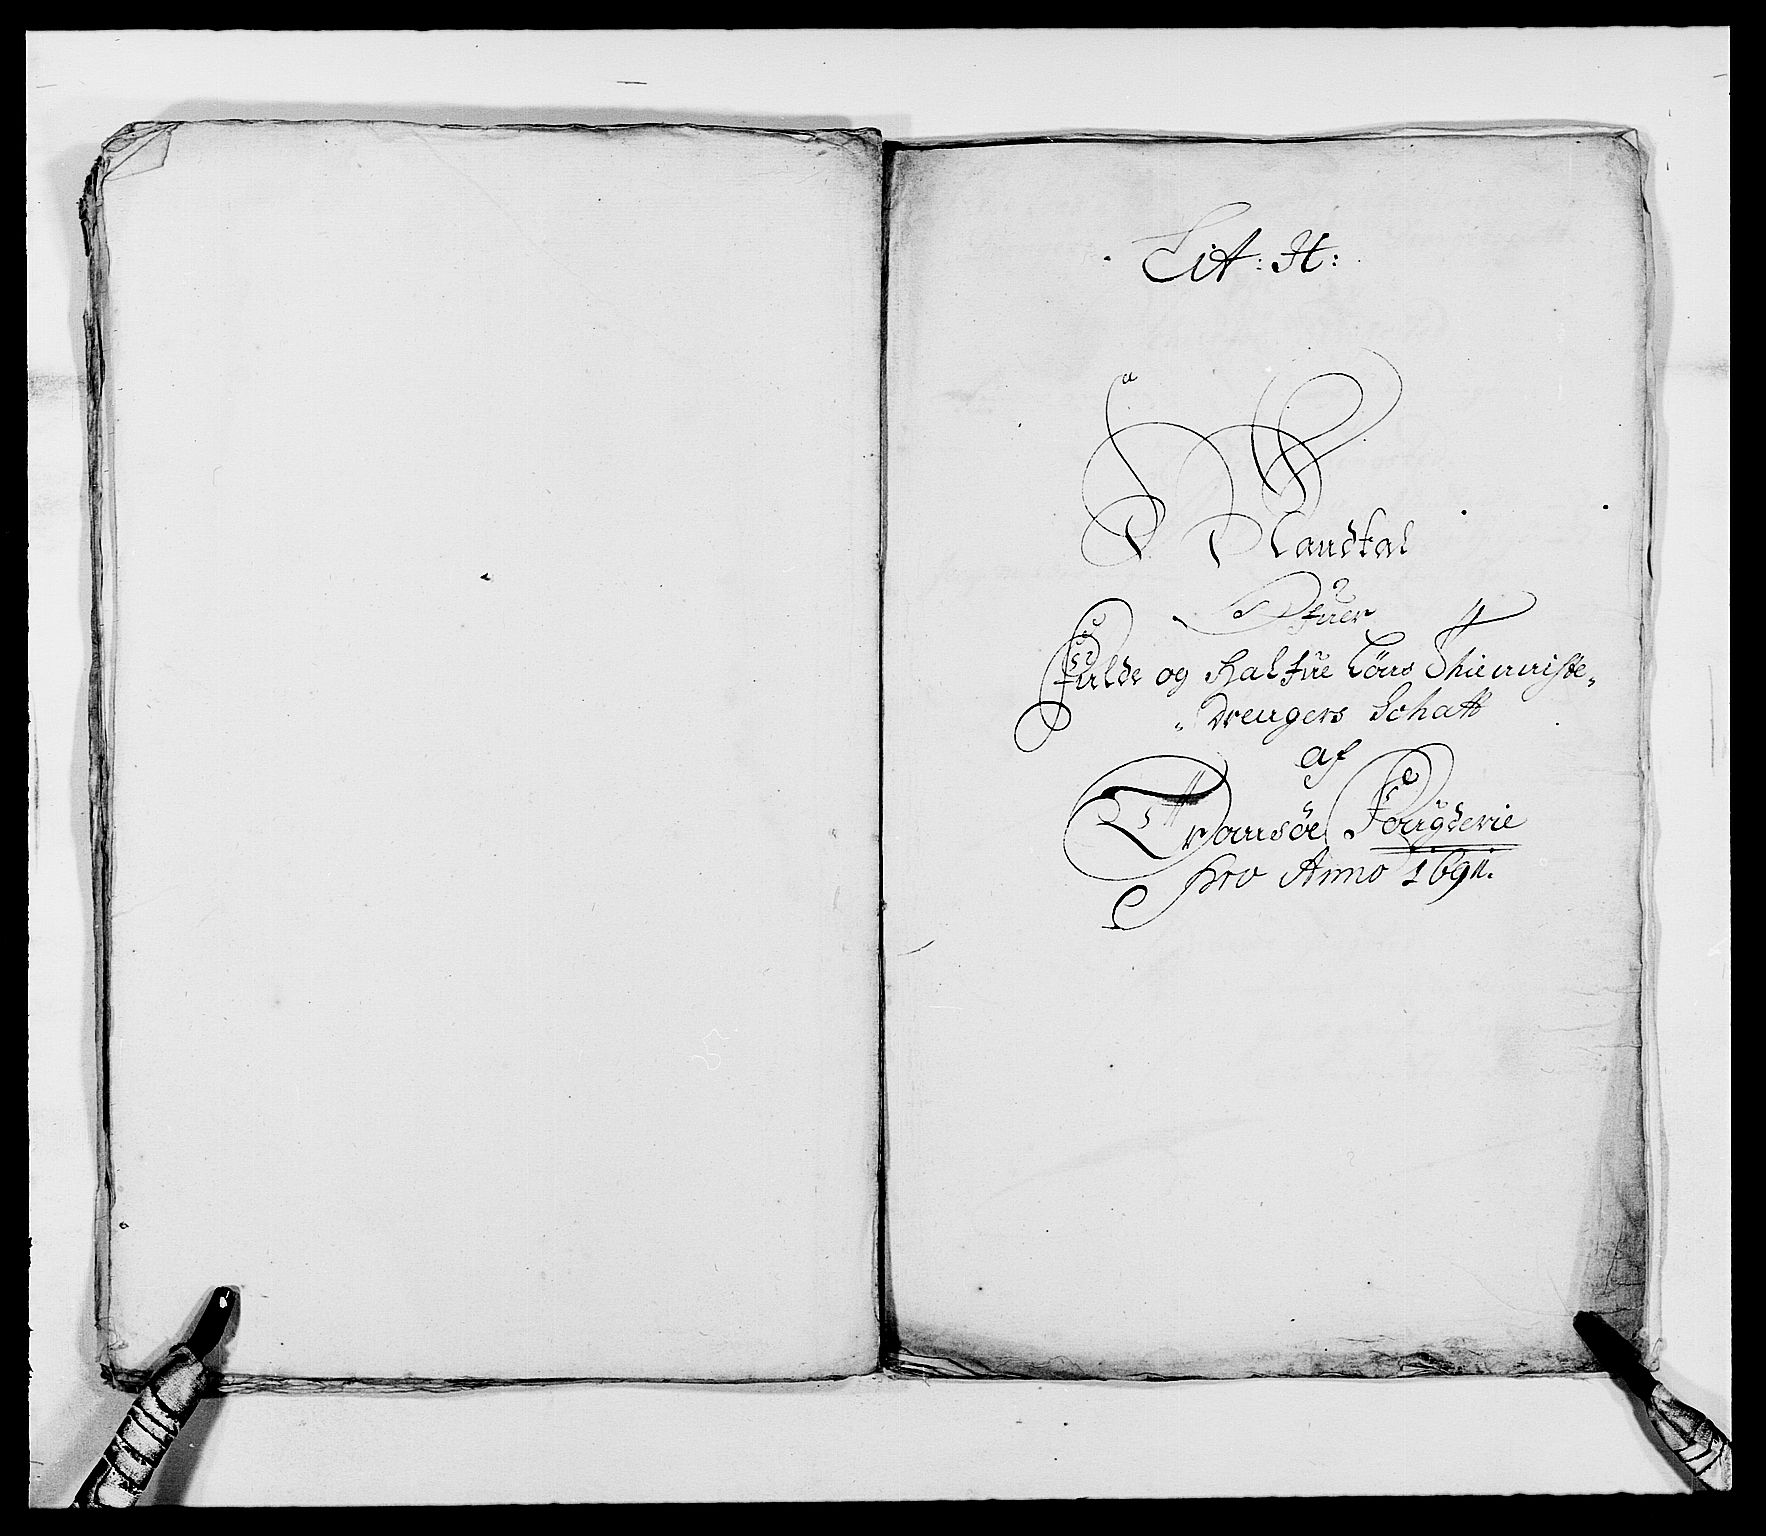 Lit: H:
Mandtal
Ofuer
Fulde og Halfue Löns Thienniste„
„Drengers Schatt
af
Tromsöe Fougderie
pro Anno 1691.